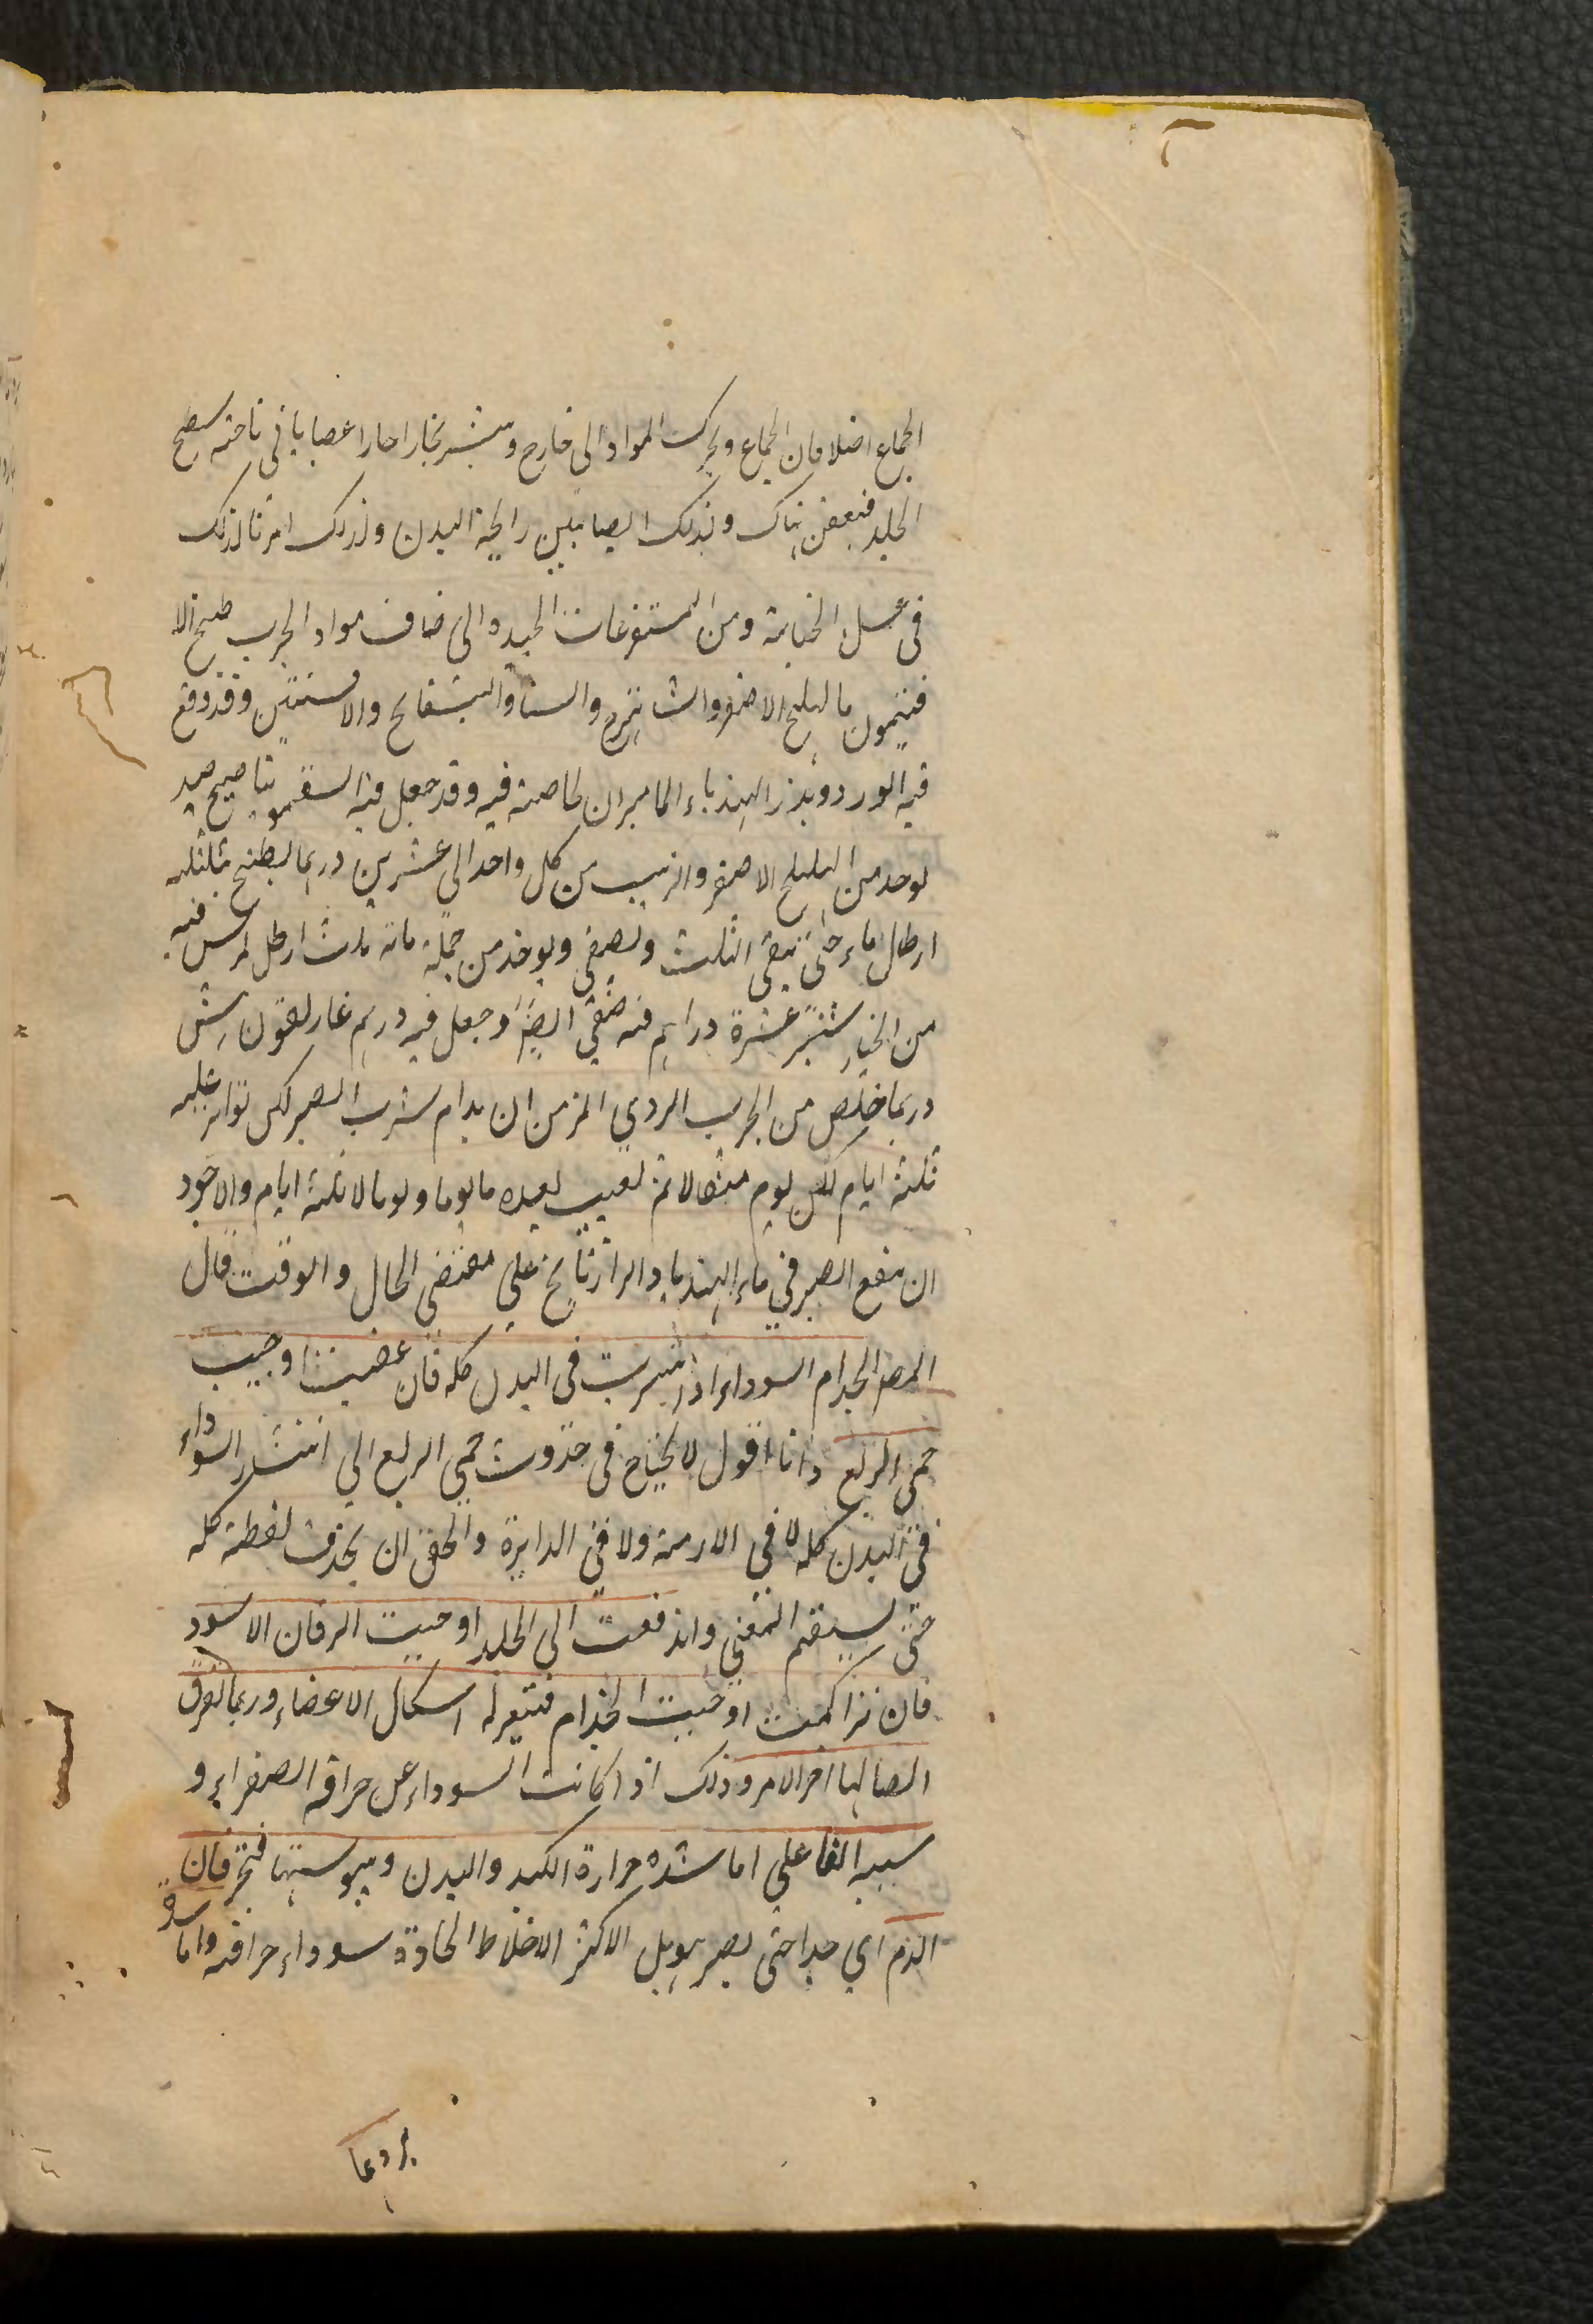 الجماع اصلا فان الجماع ويحرك المواد الى خارج وينشر بخارا حارا عصابا في ناحية سطح
الجلد فيعفن هناك وبذلك ايضا نتن رايحة البدن ولذلك امرنا لذلك
في غسل الجنابة ومن المستفرغات الجيدة التي ضاف مواد الجرب طبيخ الا
فتيمون بالهليلج الاصفر والشاهترج والسنا والبسفايج والافسنتين وقد وقع
فيه الورد وبزر الهندباء الماميران لخاصته فيه وقد جعل فيه السقمونيا صحيح جيد
يوخذ من الهليلج الاصفر والزبيب من كل واحد الى عشرين درهما يطبخ بثلثة
ارطال ماء حتى يبقى الثلث ويصفى ويوخذ من جملة مائة ثلث ارطل يمرس فيه
من الخيار شنبر عشرة دراهم فيه صفي ايضا وجعل فيه درهم غاريقون
وربما خلص من الجرب الردي المزمن ان يدام شرب الصبر لكن تواتر عليه
ثلثة ايام كل يوم مثقالا ثم تغيب بعده ما يوما ويوما لا ثلثة ايام والاجود
ان ينقع الصبر في ماء الهندبا والرازيانج على مقتضى الحال والوقت قال
المص الجذام السوداء اذا انتشرت في البدن كله فان عفنت اوجبت
حمى الربع وانا اقول لا يحتاج في حدوث حمى الربع الى انتشار السوداء
في البدن كله لا في الازمة ولا في الدايرة والحق ان يحذف لفظة كله
حتى يستقيم المعنى واندفعت الى الجلد اوجبت اليرقان الاسود
فان تراكمت اوجبت الجذام فتغير له اشكال الاعضاء وربما تفرق
اتصالها اخر الامر وذلك اذا كانت السوداء عن حراقة الصفراء و
سببه الفاعلي اما شدة حرارة الكبد والبدن ويبوستها فتحرقان
الدم اي جدا حتى يصير بل الاكثر الاخلاط الحادة سوداء حراقة واما شدة
بردها